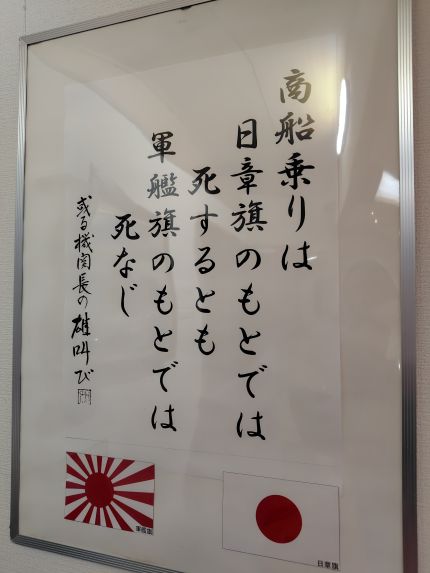 商船乗りは
日章旗のもとでは
死するとも
軍艦旗のもとでは
死なじ
或る機関長の雄叫び
軍艦旗
日章旗